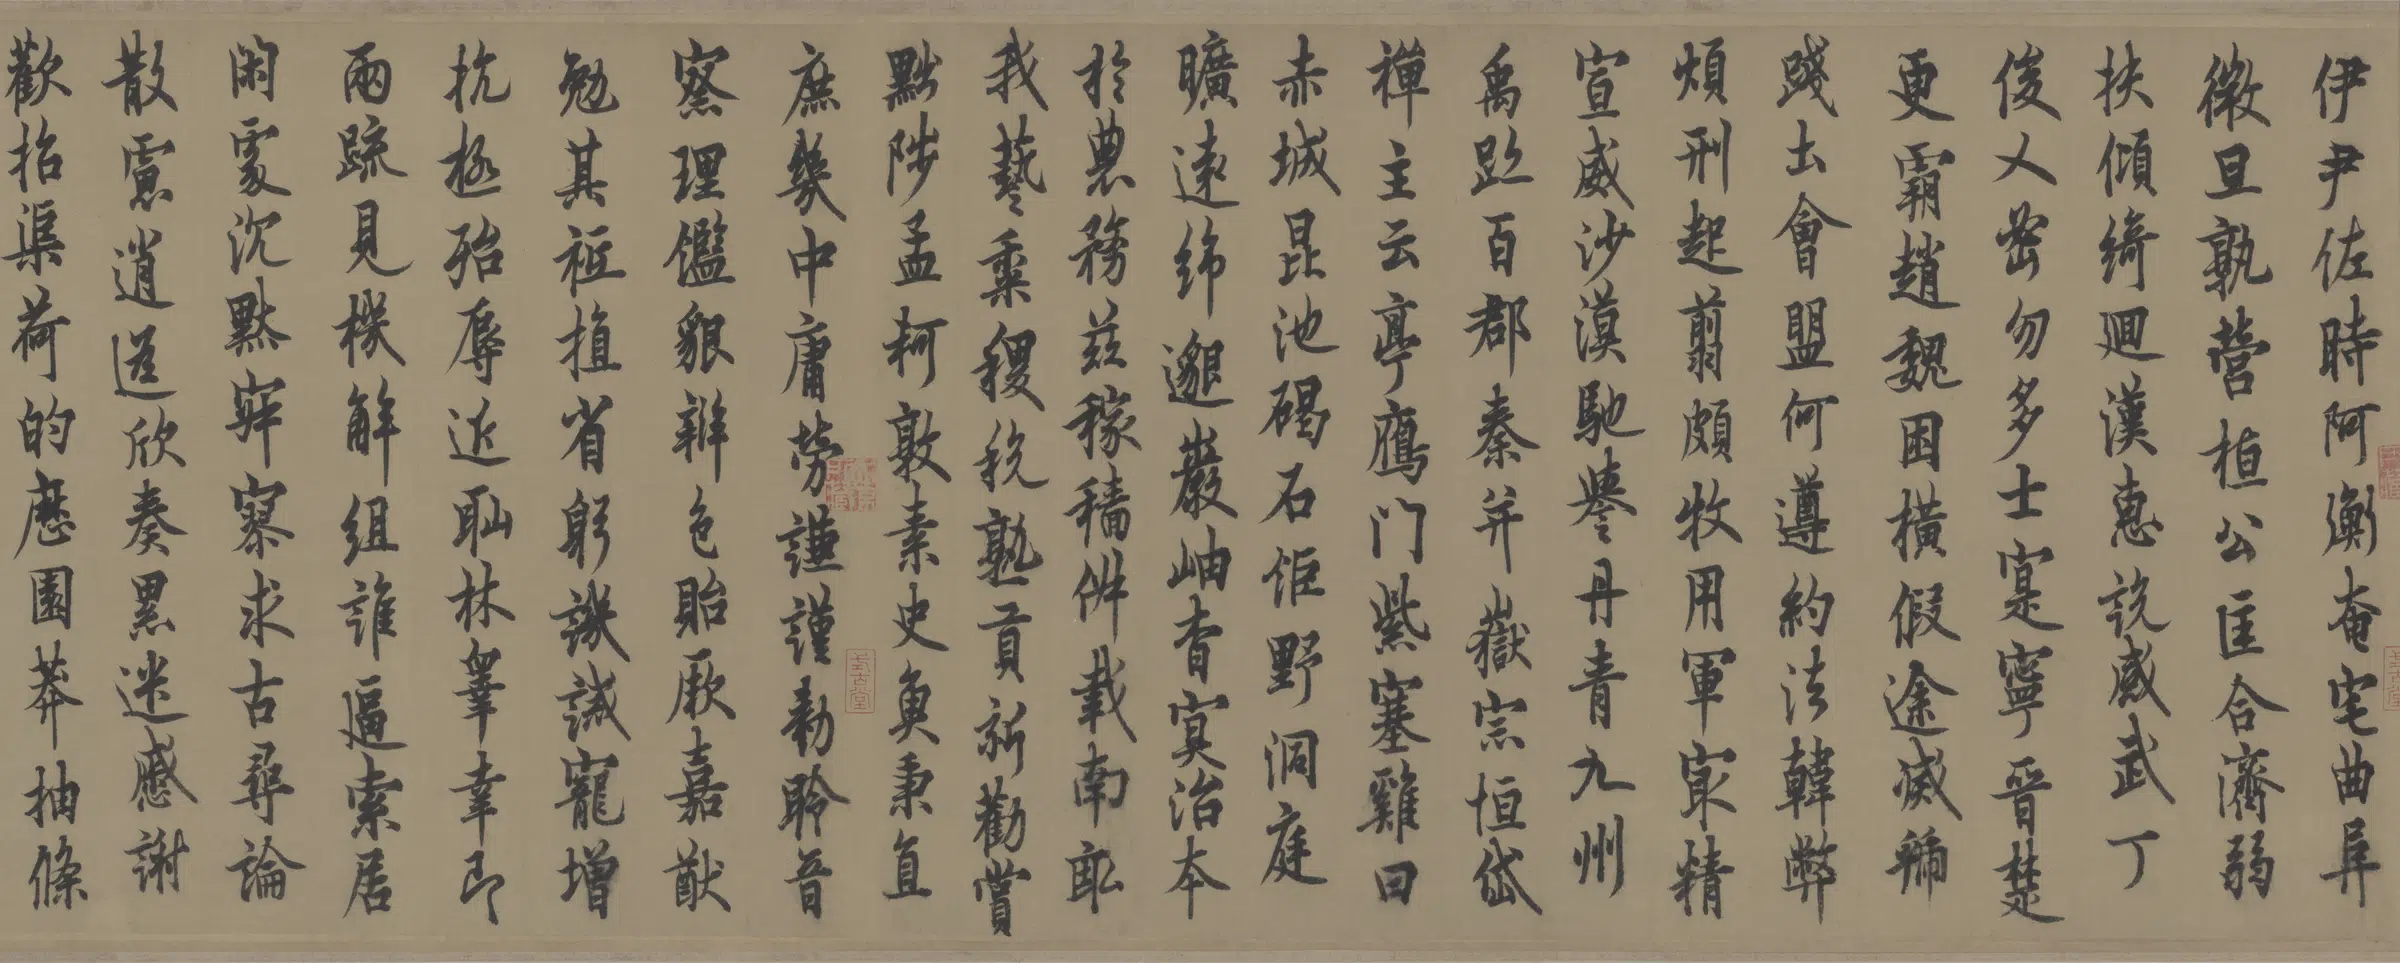 伊尹佐時阿衡奄宅曲阜
微旦孰營桓公匡合濟弱
扶傾綺迴漢惠說感武丁
俊乂密勿多士寔寧晉楚
更霸趙魏困橫假途滅虢
踐土會盟何遵約法韓弊
煩刑起翦頗牧用軍最精
宣威沙漠馳譽丹青九州
禹跡百郡秦并嶽宗恒岱
禪主云亭鴈門紫塞雞田
赤城昆池碣石鉅野洞庭
曠遠綿邈巖岫杳冥治本
於農務茲稼穡俶載南畝
我藝黍稷稅熟貢新勸賞
黜陟孟軻敦素史魚秉直
庶幾中庸勞謙謹勑聆音
察理鑑貌辨色貽厥嘉猷
勉其祗植省躬譏誡寵增
抗極殆辱近恥林皋幸即
兩疏見機解組誰逼索居
閑處沉默寂寥求古尋論
散慮逍遙欣奏累遣慼謝
歡招渠荷的歷園莽抽條